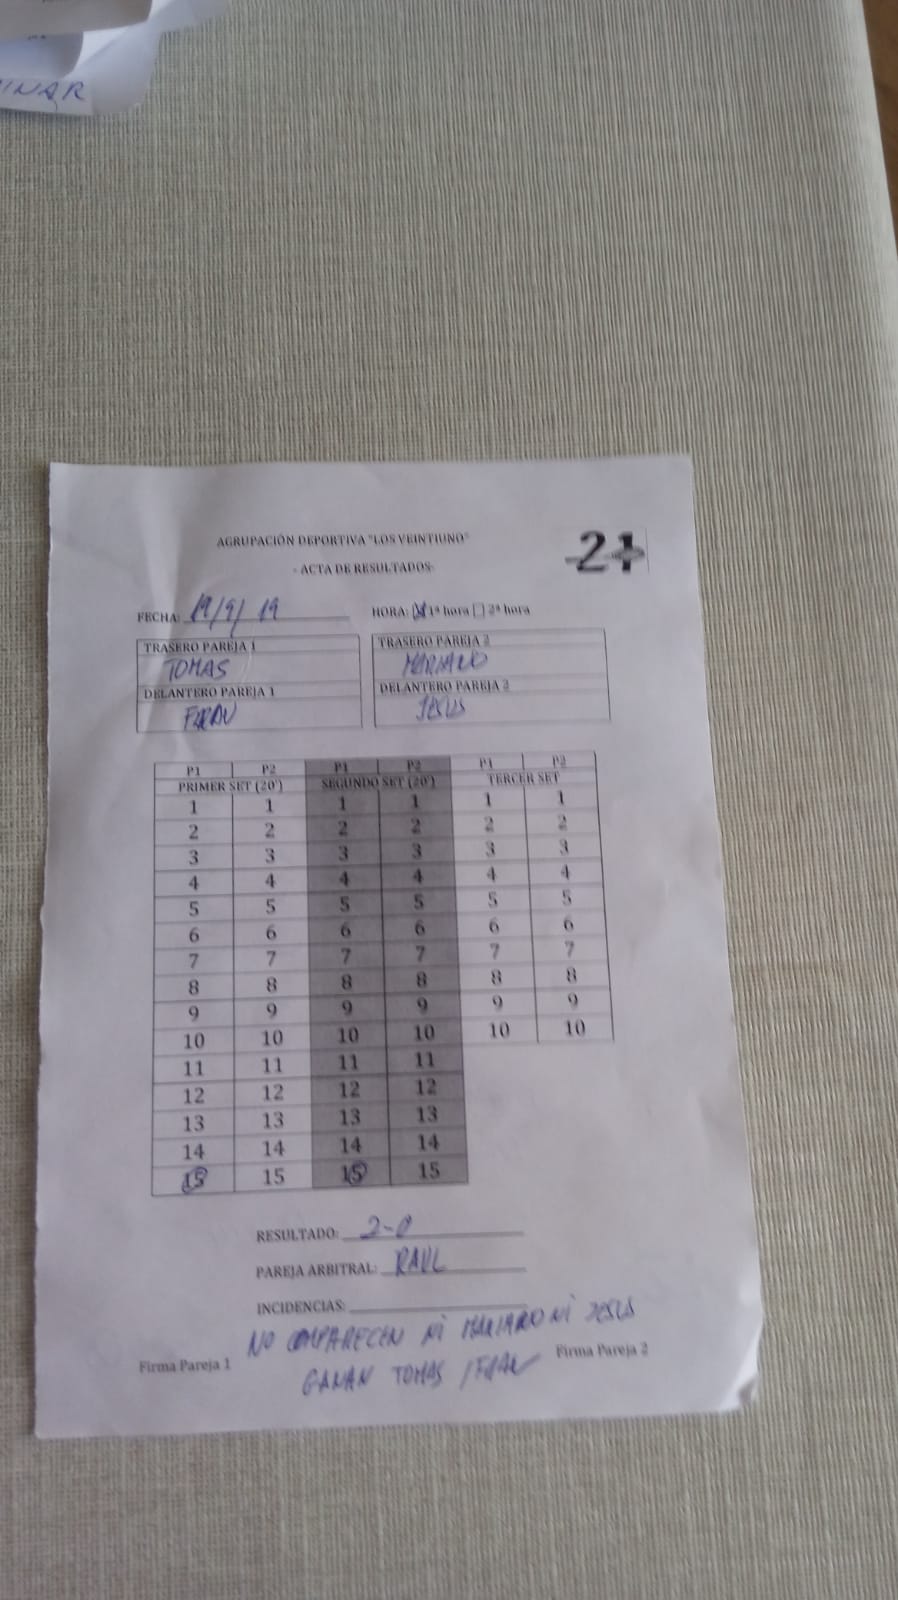 INAR
AGRUPACIÓN DEPORTIVA "LOS VEINTIUNO"
- ACTA DE RESULTADOS-
21
FECHA: 19/9/19 HORA: ☒ 1ª hora ☐ 2ª hora
TRASERO PAREJA 1 TRASERO PAREJA 2
TOMAS MARIANO
DELANTERO PAREJA 1 DELANTERO PAREJA 2
FRAN JESUS
P1 P2 P1 P2 P1 P2
PRIMER SET (20') SEGUNDO SET (20') TERCER SET
1 1 1 1 1 1
2 2 2 2 2 2
3 3 3 3 3 3
4 4 4 4 4 4
5 5 5 5 5 5
6 6 6 6 6 6
7 7 7 7 7 7
8 8 8 8 8 8
9 9 9 9 9 9
10 10 10 10 10 10
11 11 11 11
12 12 12 12
13 13 13 13
14 14 14 14
15 15 15 15
RESULTADO: 2-0
PAREJA ARBITRAL: RAUL
INCIDENCIAS:
NO COMPARECEN NI MARIANO NI JESUS
Firma Pareja 1 GANAN TOMAS / FRAN Firma Pareja 2